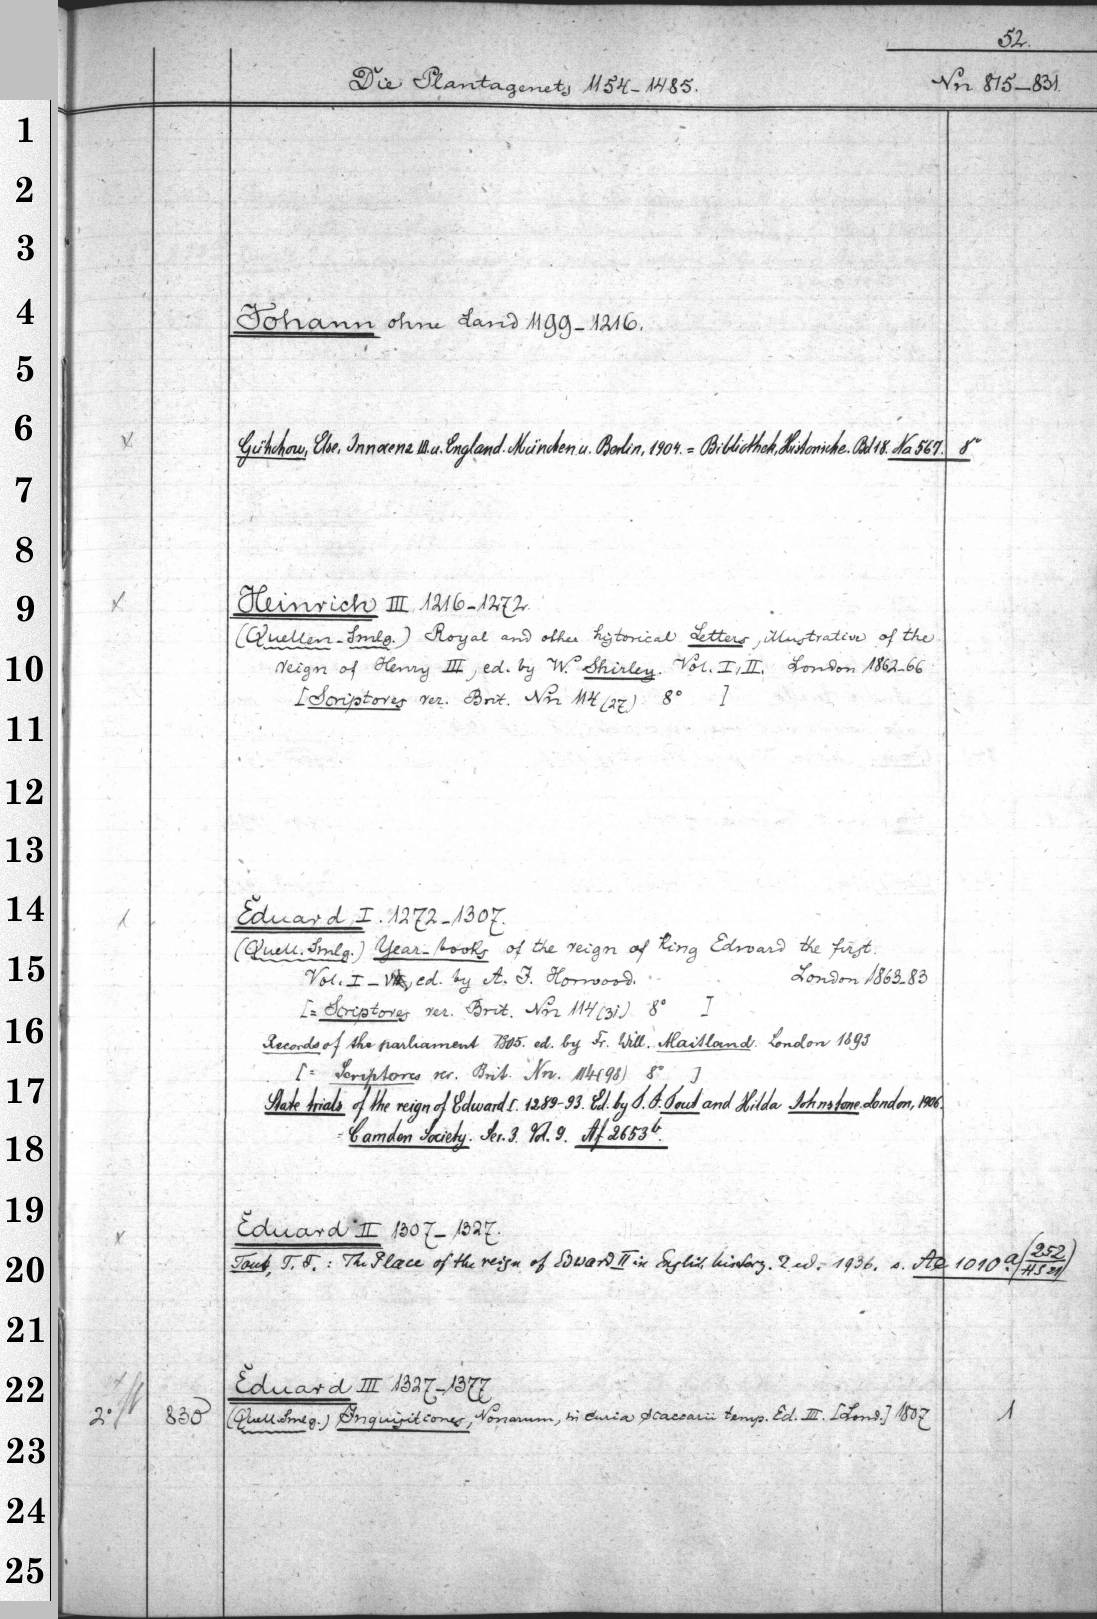 52.
Die Plantagenets 1154–1485. Nn 815–831.
1
2
3
4
Johann ohne Land 1199–1216.
5
6
x Gütschow, Else. Innocenz III. u. England. München u. Berlin, 1904. = Bibliothek, Historische. Bd 18. Na 567. 8°
7
8
9
x Heinrich III 1216–1272.
(Quellen-Smlg.) Royal and other historical Letters, illustrative of the
10
reign of Henry III, ed. by W. Shirley. Vol. I, II. London 1862–66
[Scriptores rer. Brit. Nn 114 (27) 8° ]
11
12
13
14
Eduard I. 1272–1307.
(Quell. Smlg.) Year-books of the reign of King Edward the first.
15
Vol. I– ed. by A. J. Horwood. London 1863–83
[= Scriptores rer. Brit. Nn 114 (31) 8° ]
16
Records of the parliament 1305. ed. by Fr. Will. Maitland. London 1893
[= Scriptores rer. Brit. Nn. 114 (98) 8° ]
17
State trials of the reign of Edward I. 1289–93. Ed. by T. F. Tout and Hilda Johnstone. London, 1906.
= Camden Society. Ser. 3. Vol. 9. Af 2653 b.
18
19
x Eduard II 1307–1327.
20
Tout, T. F.: The Place of the reign of Edward II in English history. 2 ed. 1936. s. Ae 1010 a (252/HS 21)
21
22
Eduard III 1327–1377
2° 830 (Quell. Smlg.) Inquisitiones, Nonarum, in curia scaccarii temp. Ed. III. [Lond.] 1807 1
23
24
25